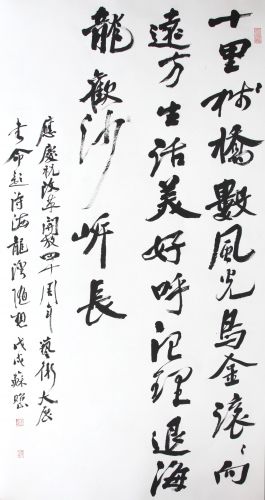 十里栈橋數風光烏金滚〻向
遠方生活美好呼治理退海
龍歡沙岸長
應慶祝改革開放四十周年藝術大展
書命題詩海龍灣隨想戊戌蘇